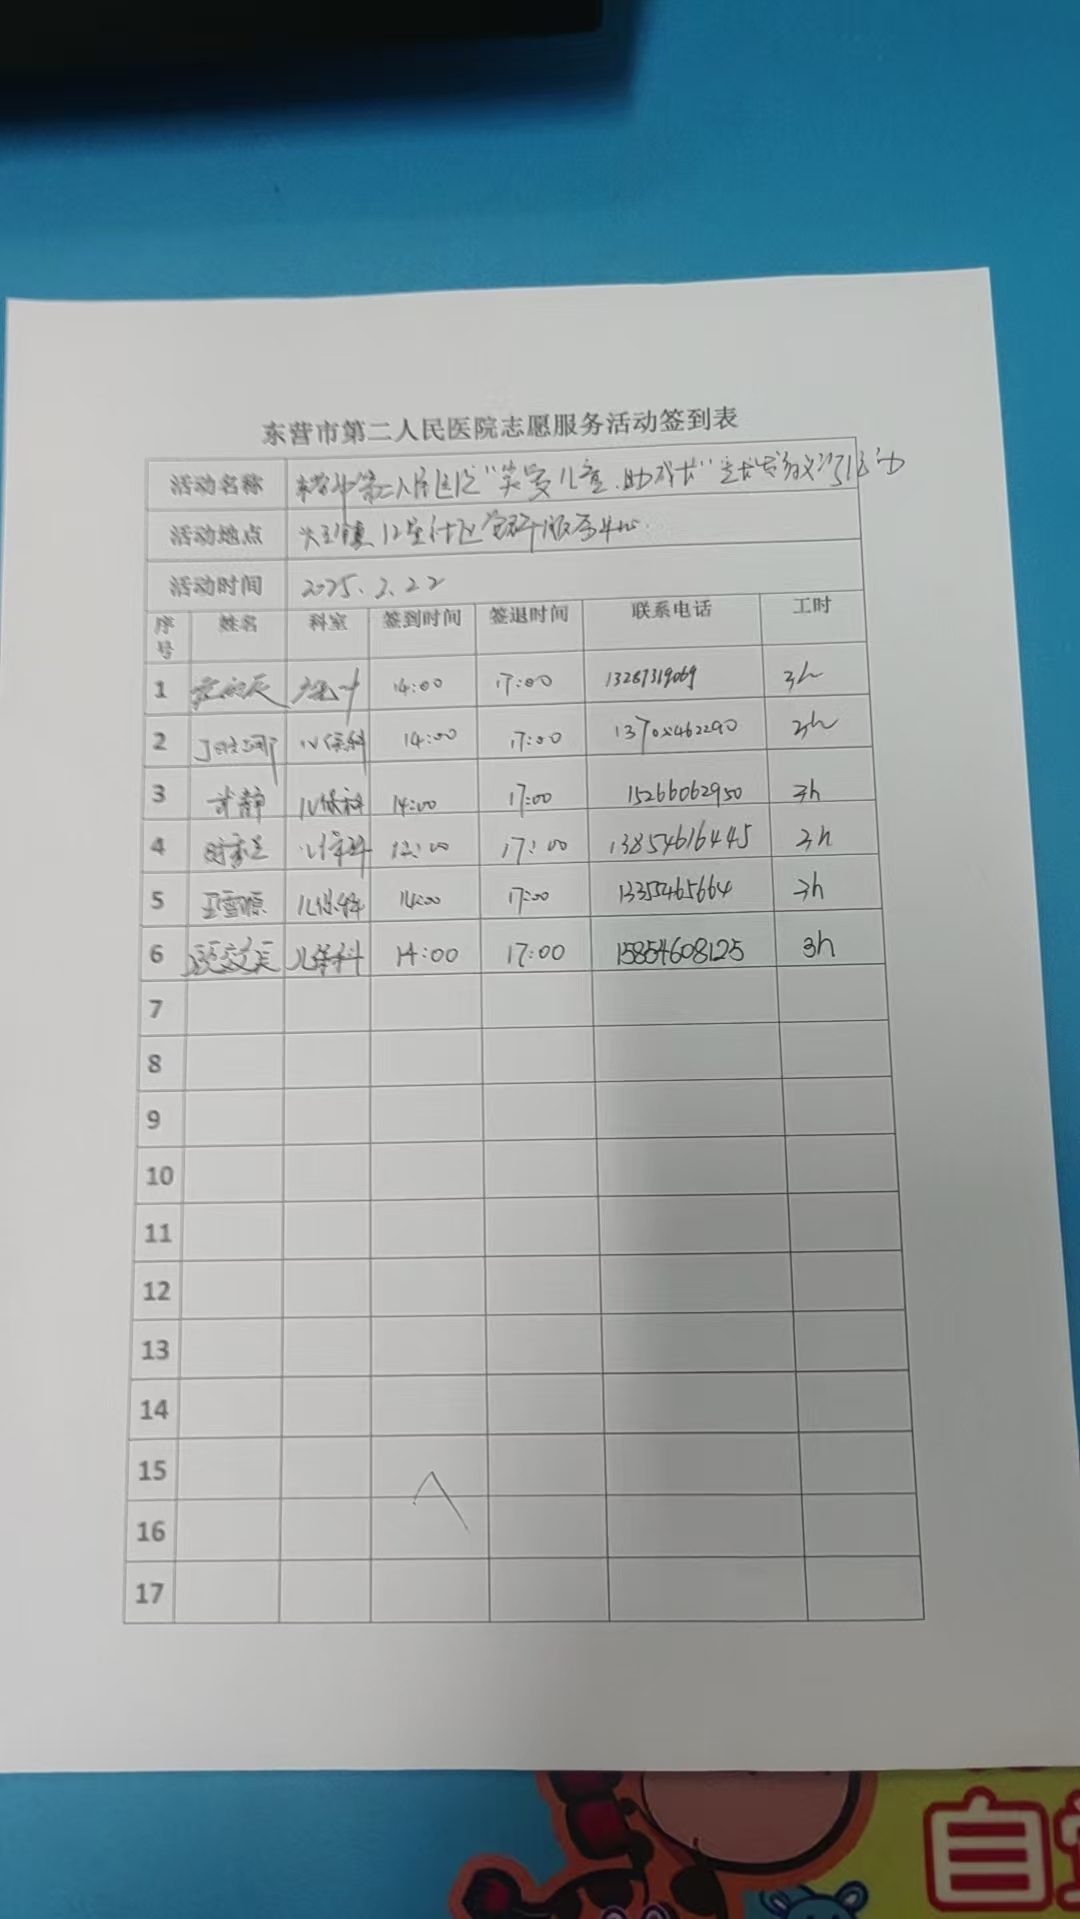 东营市第二人民医院志愿服务活动签到表
活动名称 东营市第二人民医院"关爱儿童、助成长"生长发育义诊活动
活动地点 大王镇 社区 服务中心.
活动时间 2025.2.22
序号 姓名 科室 签到时间 签退时间 联系电话 工时
1 14:00 17:00 13287319069 3h
2 儿保科 14:00 17:00 3h
3 静 儿保科 14:00 17:00 15266062950 3h
4 儿保科 17:00 13854616445 3h
5 王雪 儿保科 14:00 17:00 3h
6 儿保科 14:00 17:00 15854608125 3h
7
8
9
10
11
12
13
14
15
16
17
自